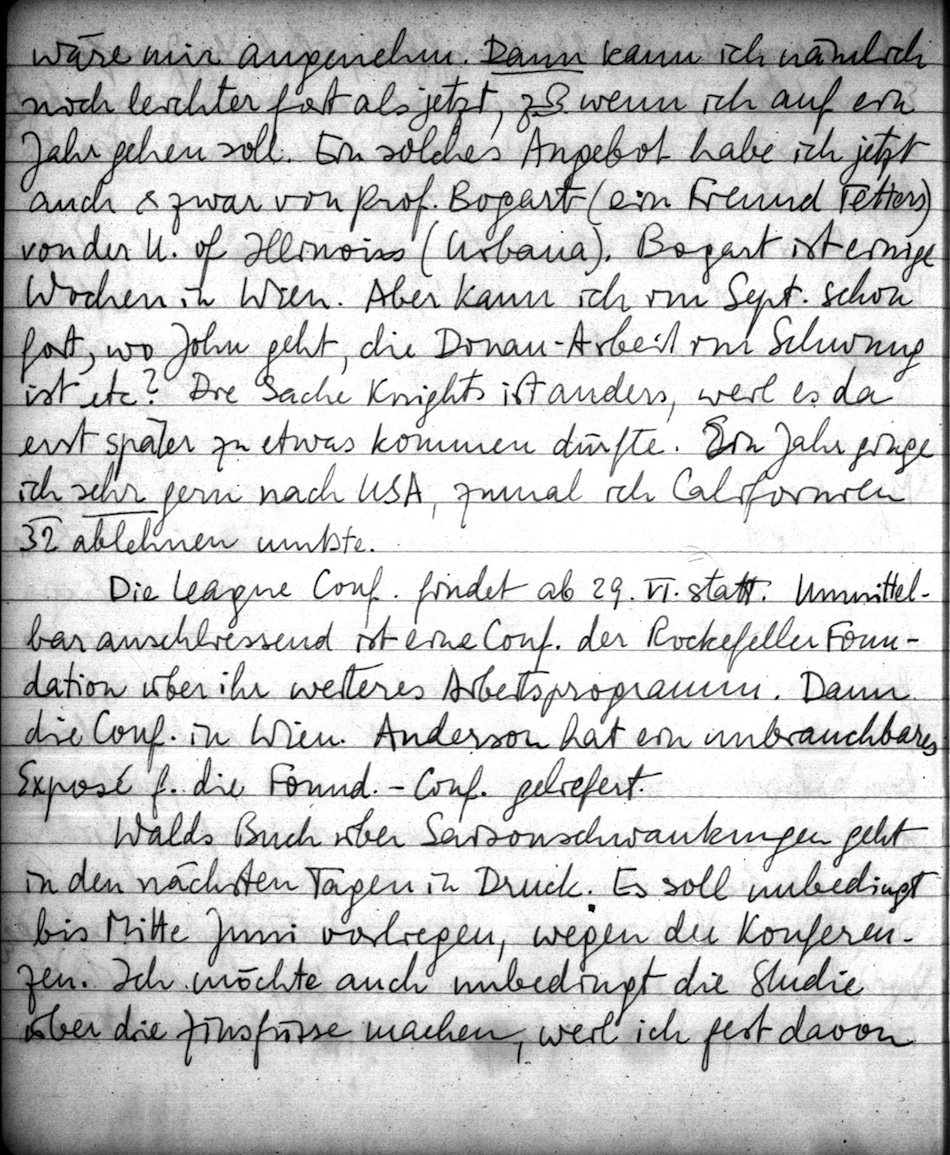 wäre mir angenehm. Dann kann ich nämlich
noch leichter fort als jetzt, zB wenn ich auf ein
Jahr gehen soll. Ein solches Angebot habe ich jetzt
auch & zwar von Prof. Bogart (ein Freund Fetters)
von der U. of Illinoiss (Urbana). Bogart ist einige
Wochen in Wien. Aber kann ich im Sept. schon
fort, wo John geht, die Donau-Arbeit im Schwung
ist etc? Die Sache Knights ist anders, weil es da
erst später zu etwas kommen dürfte. Ein Jahr ginge
ich sehr gern nach USA, zumal ich Californien
32 ablehnen mußte.
Die League Conf. findet ab 29. VI. statt. Unmittel-
bar anschliessend ist eine Conf. der Rockefeller Foun-
dation über ihr weiteres Arbeitsprogramm. Dann
die Conf. in Wien. Anderson hat ein unbrauchbares
Exposé f. die Found.-Conf. geliefert.
Walds Buch über Saisonschwankungen geht
in den nächsten Tagen in Druck. Es soll unbedingt
bis Mitte Juni vorliegen, wegen der Konferen-
zen. Ich möchte auch unbedingt die Studie
über die Zinsfüsse machen, weil ich fest davon